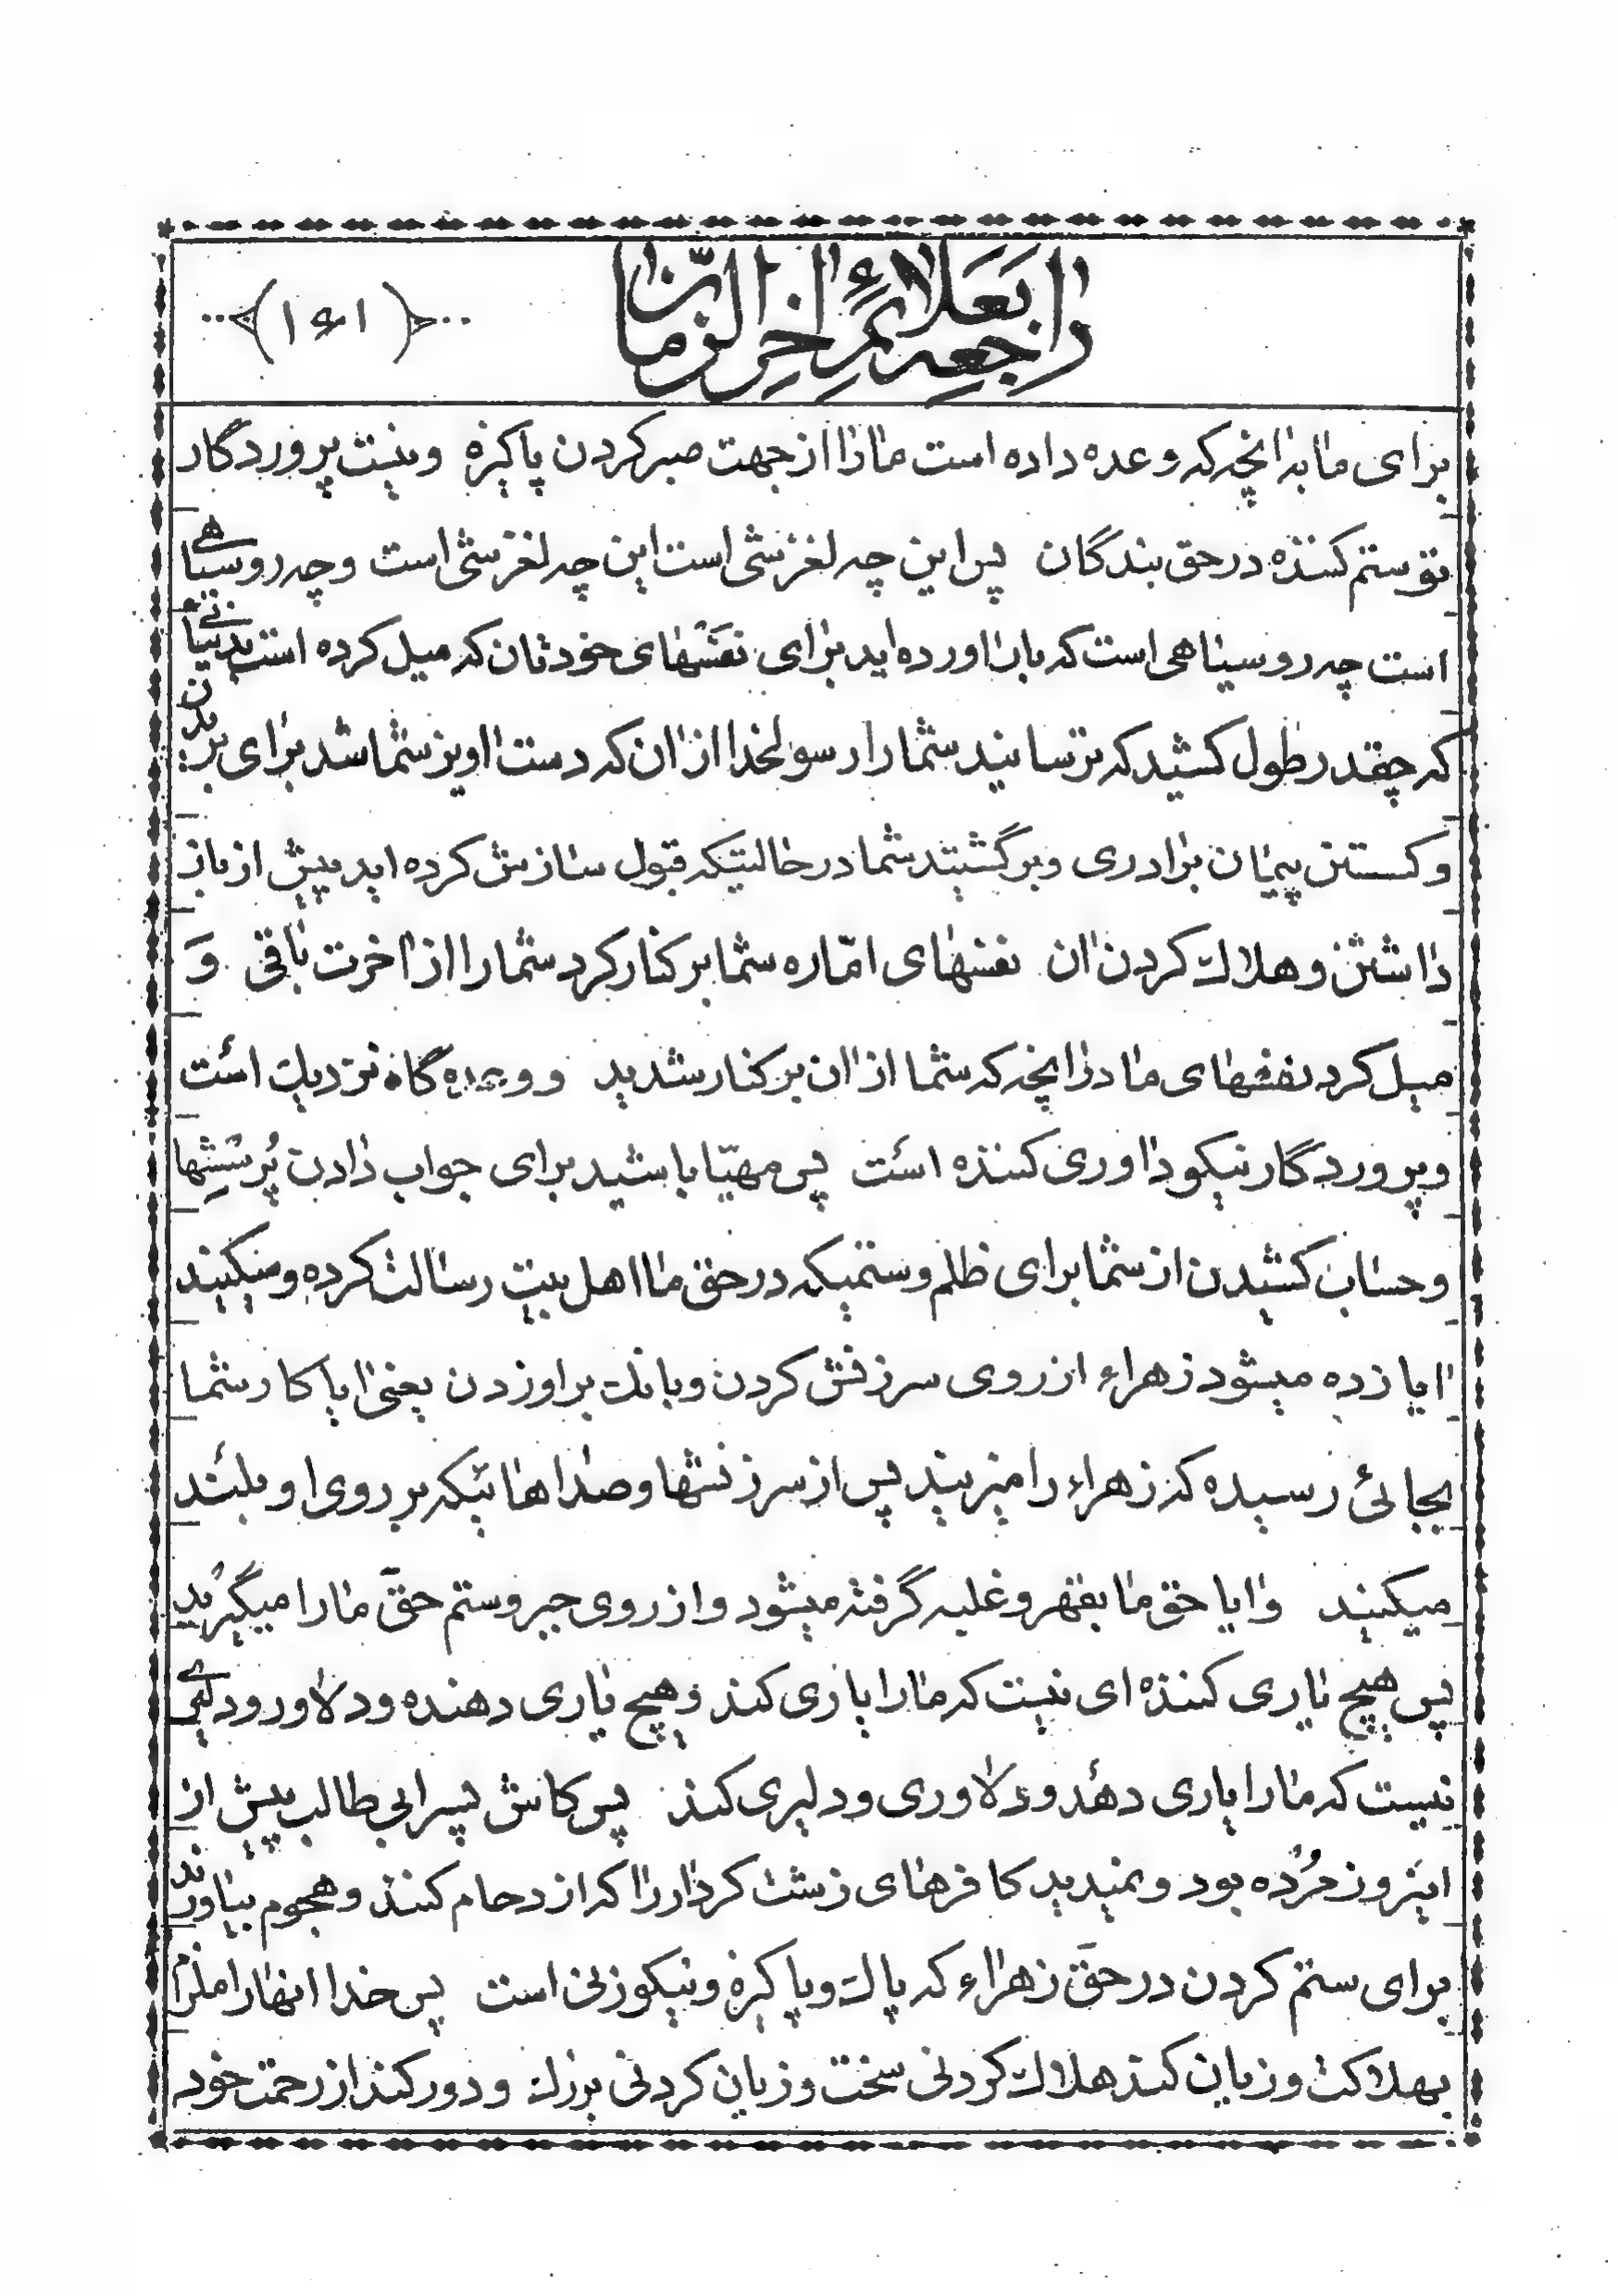 راجعه بعلائم اخر الزمان
(۱۶۱)
برای ما به انچه که وعده داده است ما را از جهت صبر کردن پاکیزه و نیست پروردگار
تو ستم کننده در حق بندگان پس این چه لغزشی است این چه لغزشی است و چه روسیاهی
است چه روسیاهی است که بار اورده اید برای نفسهای خودتان که میل کرده است
که چقدر طول کشید که ترسانید شما را رسولخدا از ان که دست اویز شما شد برای بریدن
و کسستن پیمان برادری و برگشتید شما در حالتیکه قبول سازش کرده اید پیش از باز
داشتن و هلاک کردن ان نفسهای امّاره شما برکنار کرد شما را از اخرت باقی وَ
میل کرد نفسهای ما در انچه که شما از ان برکنار شدید و وعده گاه نزدیک است
و پروردگار نیکو داوری کننده است پس مهیّا باشید برای جواب دادن پُرسِشِها
و حساب کشیدن از شما برای ظلم و ستمیکه در حق ما اهل بیت رسالت کرده و میکنید
ایا زده میشود زهراء از روی سرزنش کردن و بانک براوردن یعنی ایا کار شما
بجائی رسیده که زهراء را میزنید پس از سرزنشها و صداهائیکه بر روی او بلند
میکنید و ایا حق ما بقهر و غلبه گرفته میشود و از روی جبر و ستم حقّ ما را میگیرید
پس هیچ یاری کننده ای نیست که ما را یاری کند و هیچ یاری دهنده و دلاور و دلیری
نیست که ما را یاری دهد و دلاوری و دلیری کند پس کاش پسر ابی طالب پیش از
امروز مُرده بود و نمیدید کافرهای زشت کردار را که ازدحام کنند و هجوم بیاورند
برای ستم کردن در حقّ زهراء که پاک و پاکیزه و نیکو زنی است پس خدا انها را
بهلاکت و زیان کند هلاک کردنی سخت و زیان کردنی بزرک و دور کند از رحمت خود